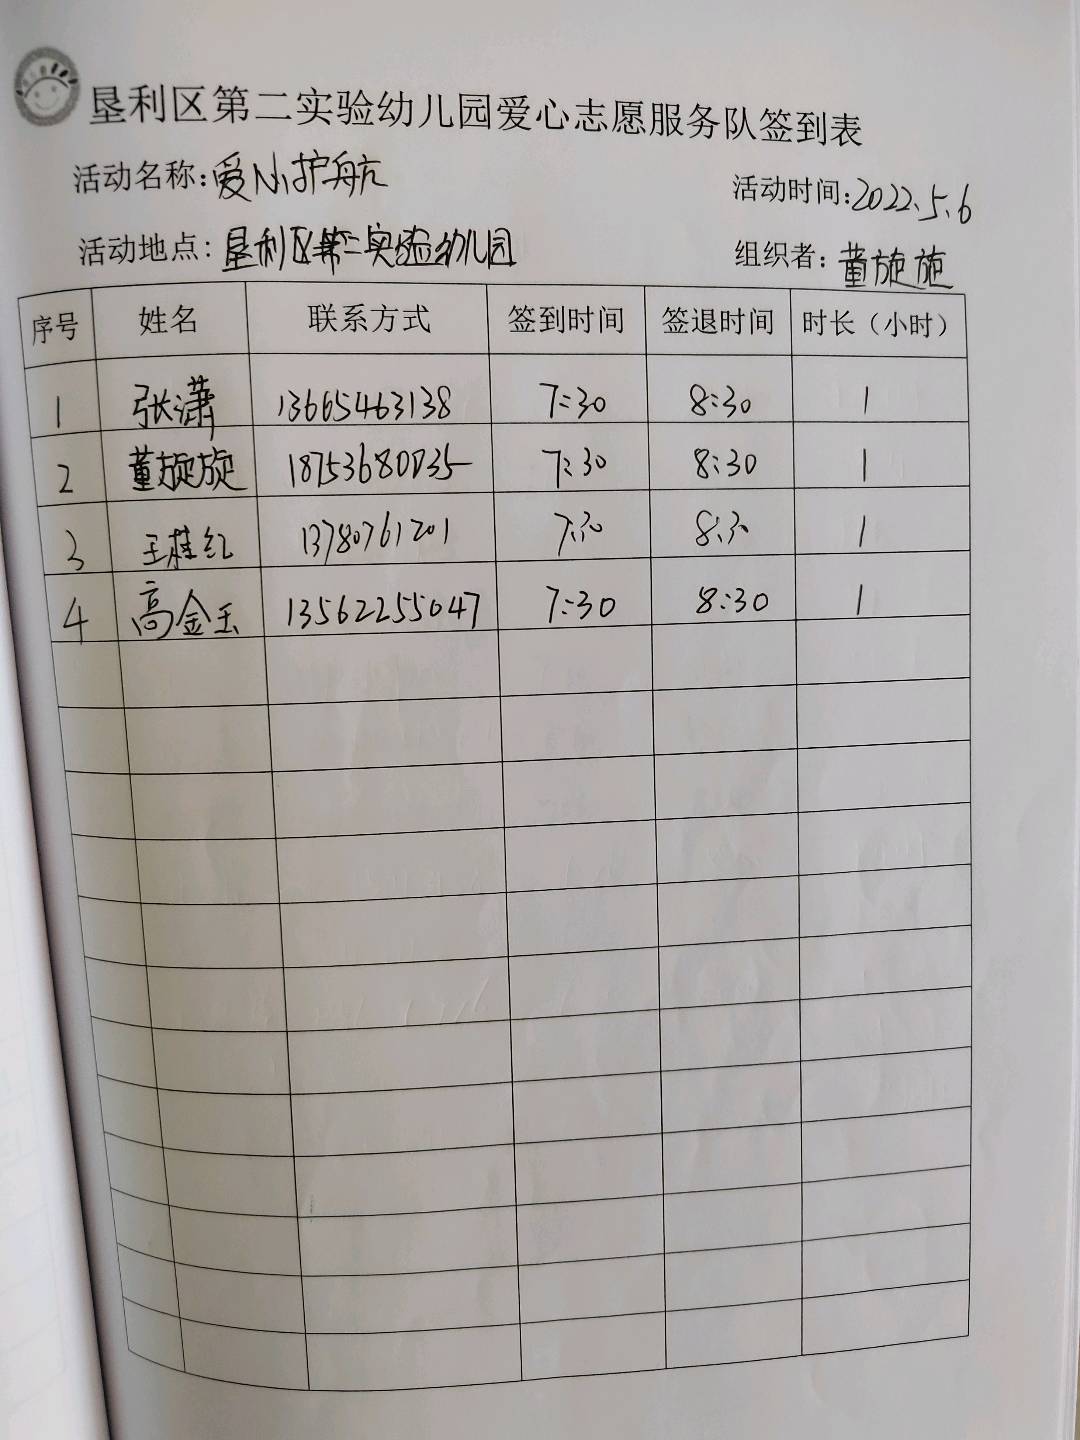 垦利区第二实验幼儿园爱心志愿服务队签到表
活动名称:爱心护航 活动时间:2022.5.6
活动地点:垦利区第二实验幼儿园 组织者:董旋旋
序号 姓名 联系方式 签到时间 签退时间 时长（小时）
1 张潇 13665463138 7:30 8:30 1
2 董旋旋 18753680735 7:30 8:30 1
3 王桂红 13780761201 7:30 8:30 1
4 高金玉 13562255047 7:30 8:30 1